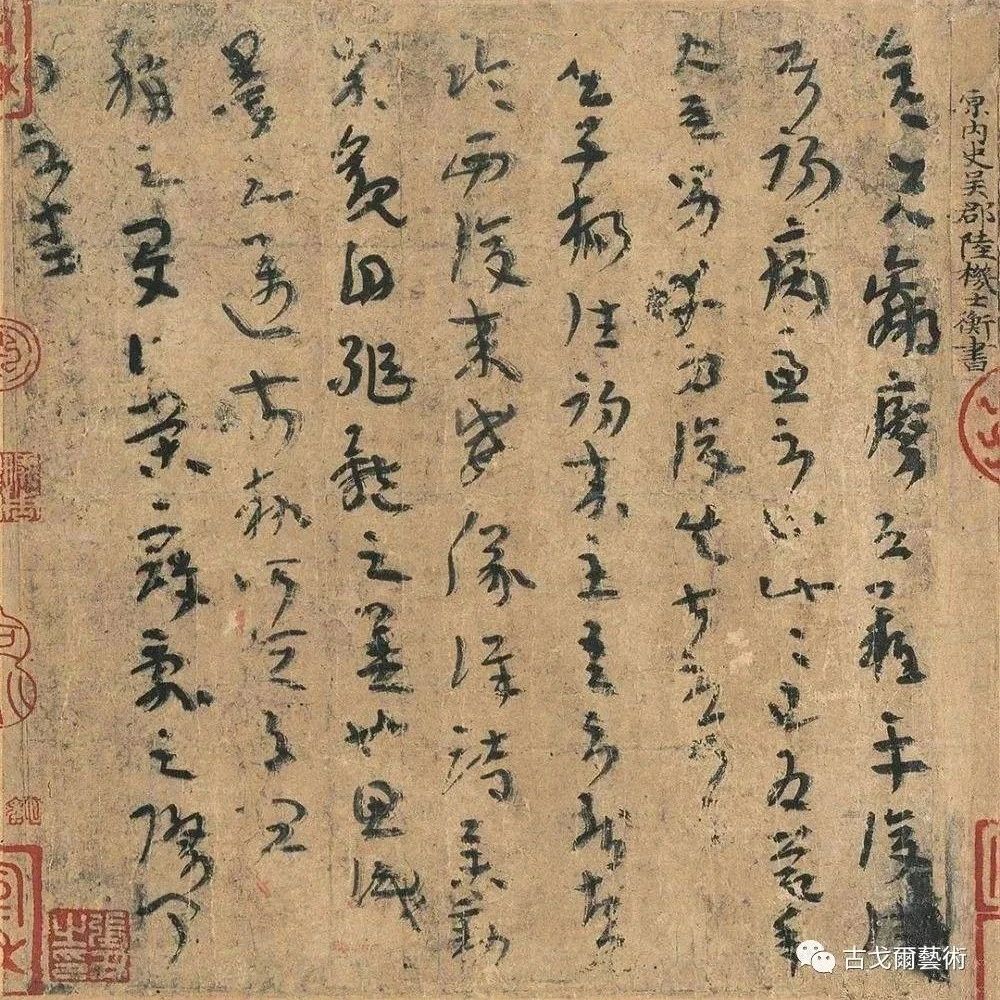 原內史吳郡陸機士衡書
彦先羸瘵恐難平復往屬
初病慮不止此々已為慶承
使唯男幸為復失前憂耳
吳子楊往初來主吾不能盡
臨西復來威儀詳跱舉動
成觀自軀體之美也思識
量之邁前執所恒有宜
稱之夏伯榮寇亂之際聞
問不悉
張丑之印
古戈爾藝術